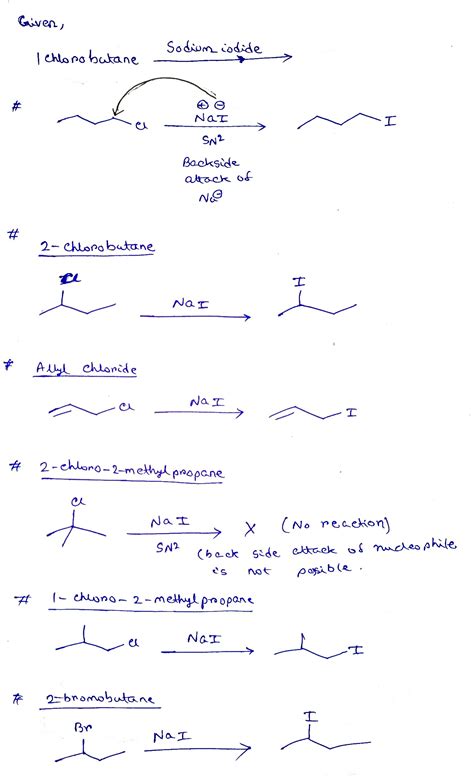 Given,
1 chlorobutane Sodium iodide
#
Cl
⊕ ⊖
NaI
SN²
I
Backside
attack of
Na⊖
# 2-chlorobutane
Cl
NaI
I
# Allyl chloride
Cl
NaI
I
# 2-chloro-2-methylpropane
Cl
NaI
SN²
X (No reaction)
(back side attack of nucleophile
is not possible.
# 1-chloro-2-methylpropane
Cl
NaI
I
# 2-bromobutane
Br
NaI
I